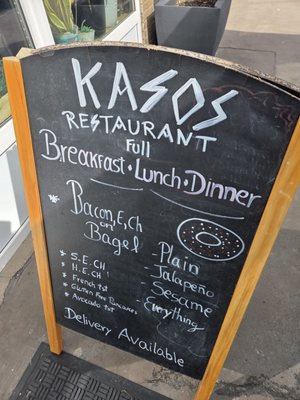 KASOS
RESTAURANT
Full
Breakfast · Lunch · Dinner
* Bacon, E, Ch
on
Bagel
Plain
Jalapeño
Sesame
Everything
* S.E.CH
* H.E.CH
* French tst
* Gluten Free Pancakes
* Avocado tst
Delivery Available